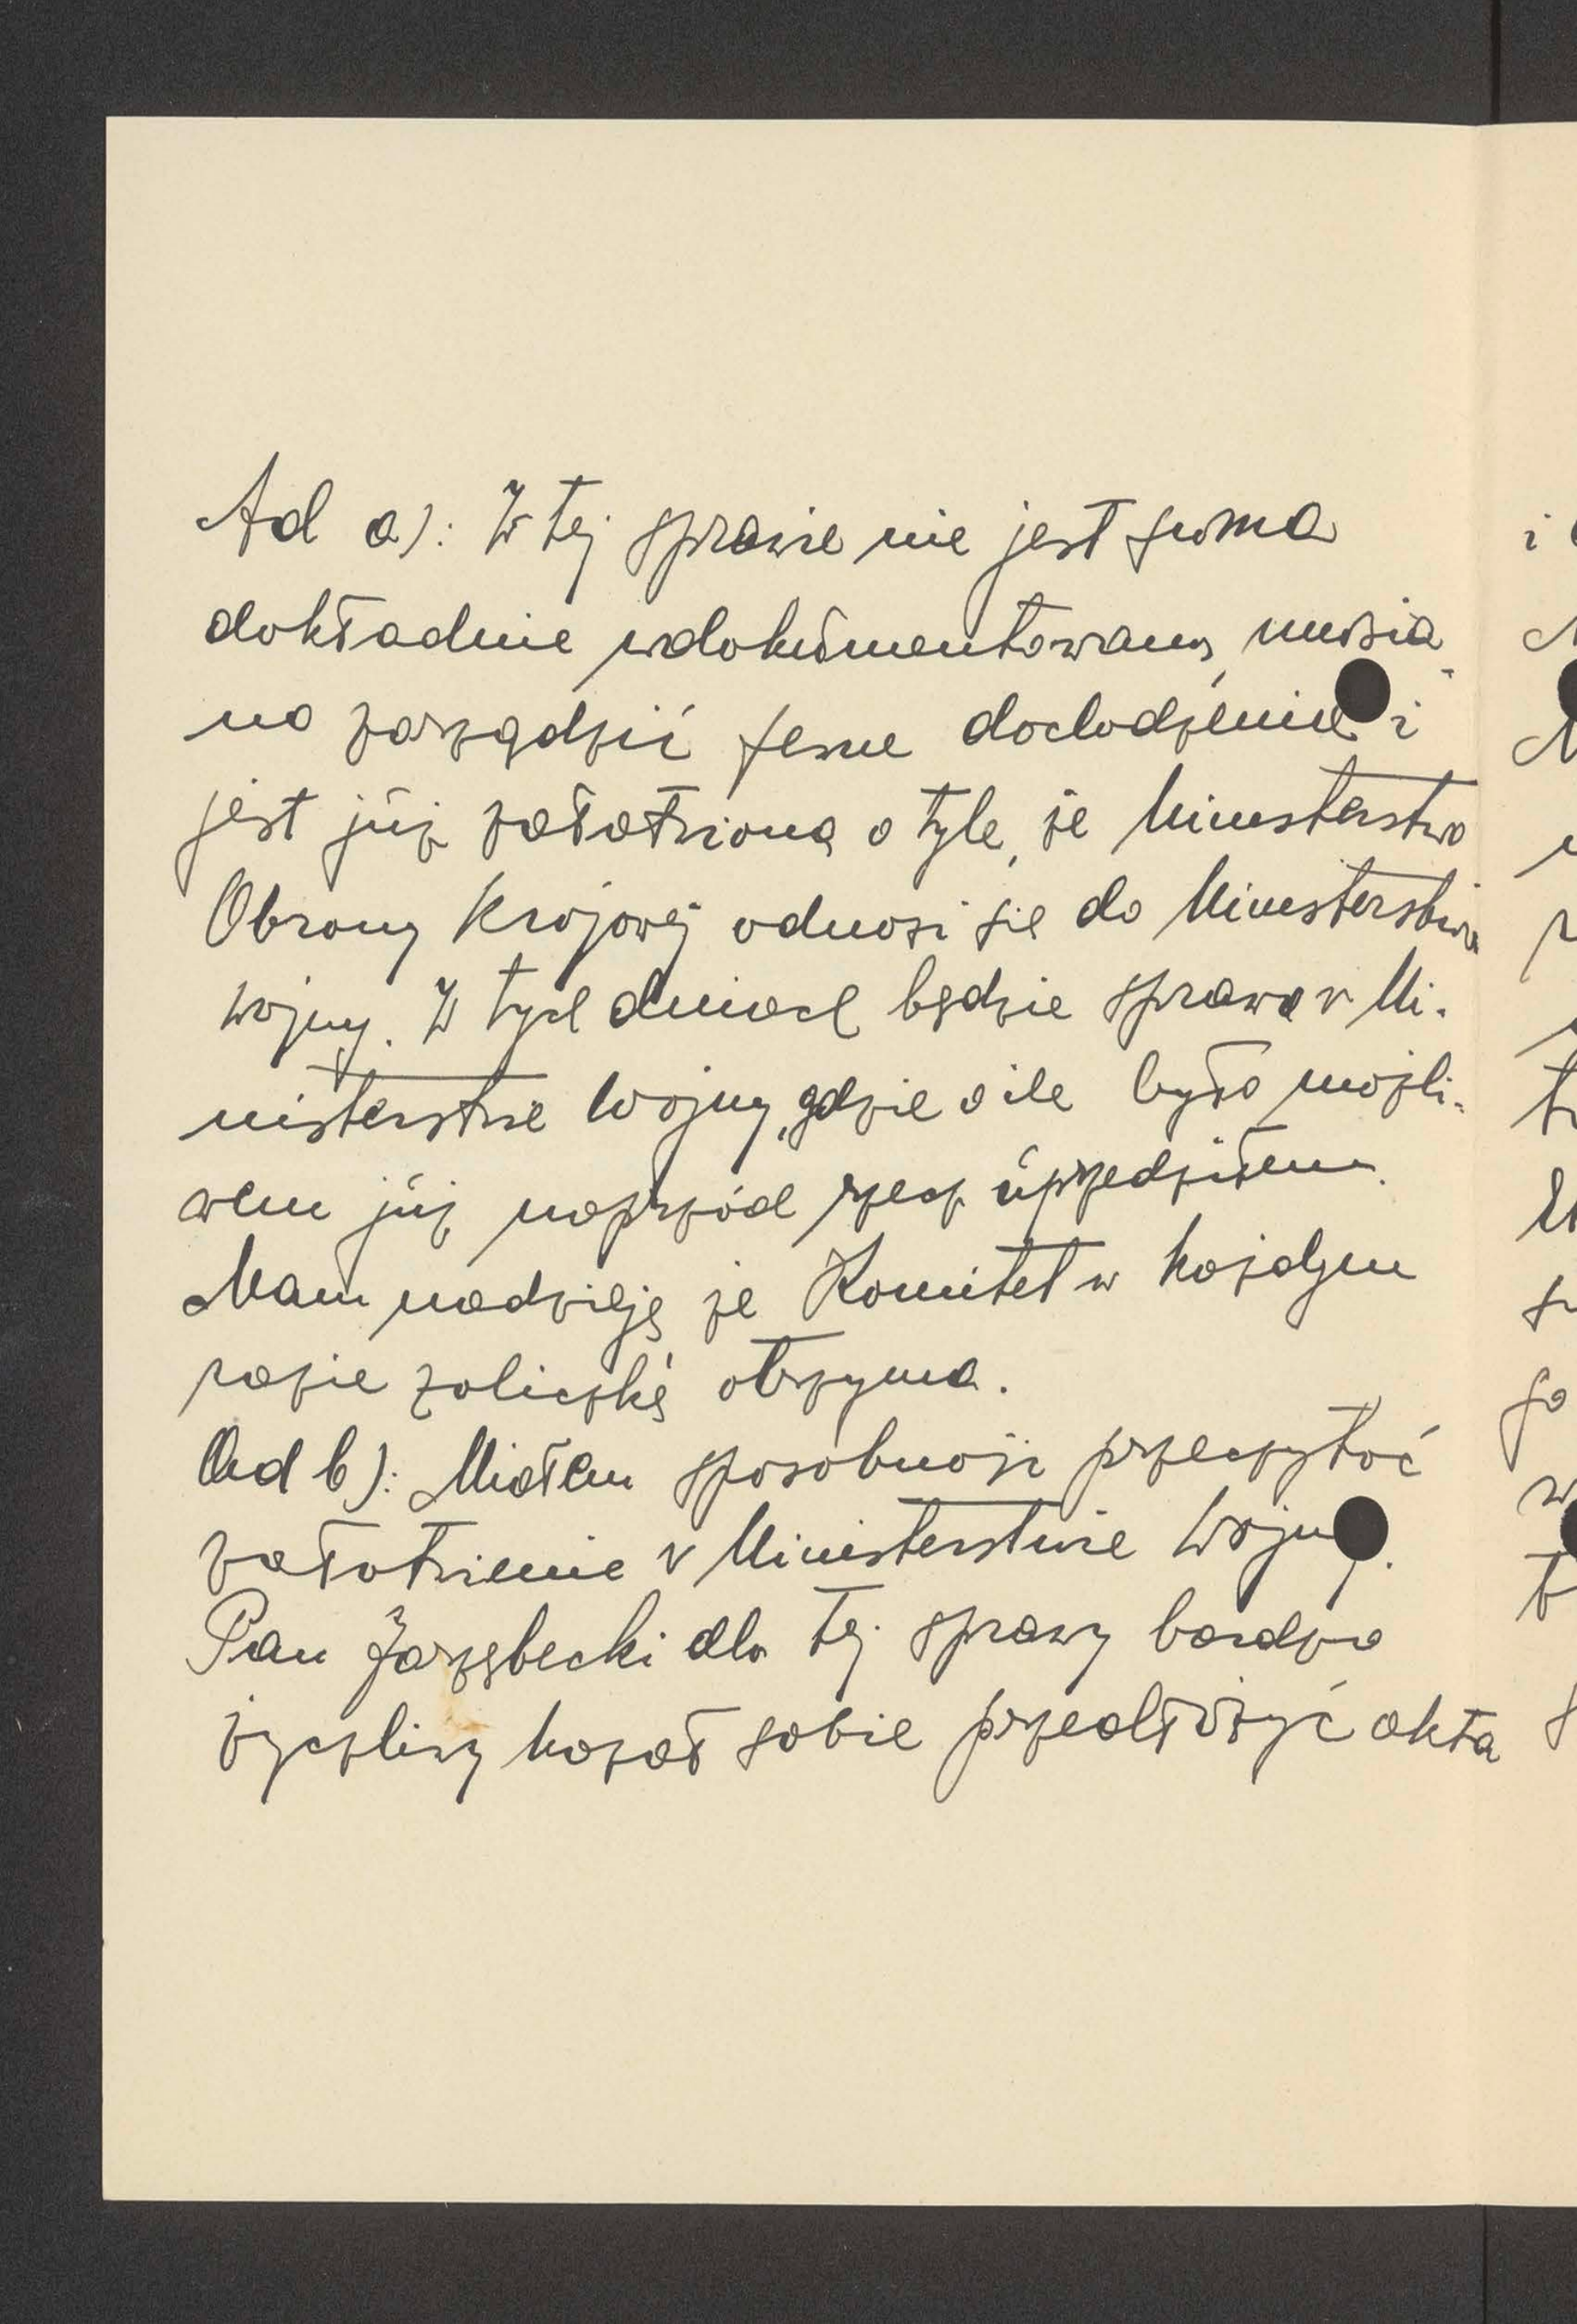 Ad a): W tej sprawie nie jest suma
dokładnie udokumentowaną, musia-
no zarządzić pewne dochodzenie i
jest już załatwioną o tyle, że Ministerstwo
Obrony Krajowej odnosi się do Ministerstwa
wojny. W tych dniach będzie sprawa v Mi-
nisterstwie Wojny, gdzie o ile było możli-
wem już naprzód rzecz uprzedziłem.
Mam nadzieję że Komitet w każdym
razie zaliczkę otrzyma.
Ad b): Miałem sposobność przeczytać
załatwienie v Ministerstwie Wojny.
Pan Jarzębecki dla tej sprawy bardzo
życzliwy kazał sobie przedłożyć akta